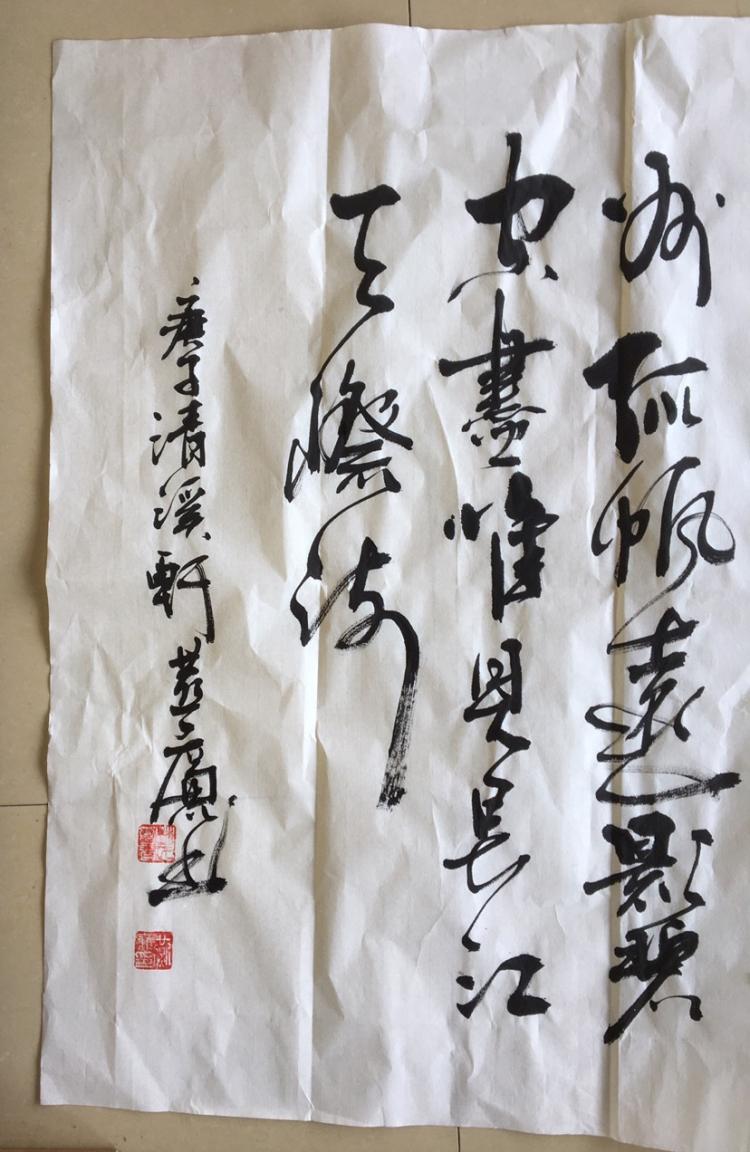 州孤帆遠影碧
空盡唯見長江
天際流
庚子清溪軒廣書